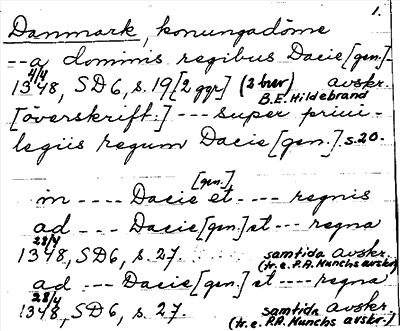 1.
Danmark, konungadöme
-- a dominis regibus Dacie [gen.]
4/4
1348, SD6, s. 19 [2 ggr] (2 brev) avskr.
B.E. Hildebrand
[överskrift:] --- super priui-
legiis regum Dacie [gen.] s. 20.
[gen.]
in ---- Dacie et ---- regnis
ad --- Dacie [gen.] et --- regna
28/4
1348, SD6, s. 27. samtida avskr.
(tr. e. P.A. Munchs avskr.)
ad --- Dacie [gen.] et ---- regna
28/4
1348, SD6, s. 27. samtida avskr.
(tr. e. P.A. Munchs avskr.)